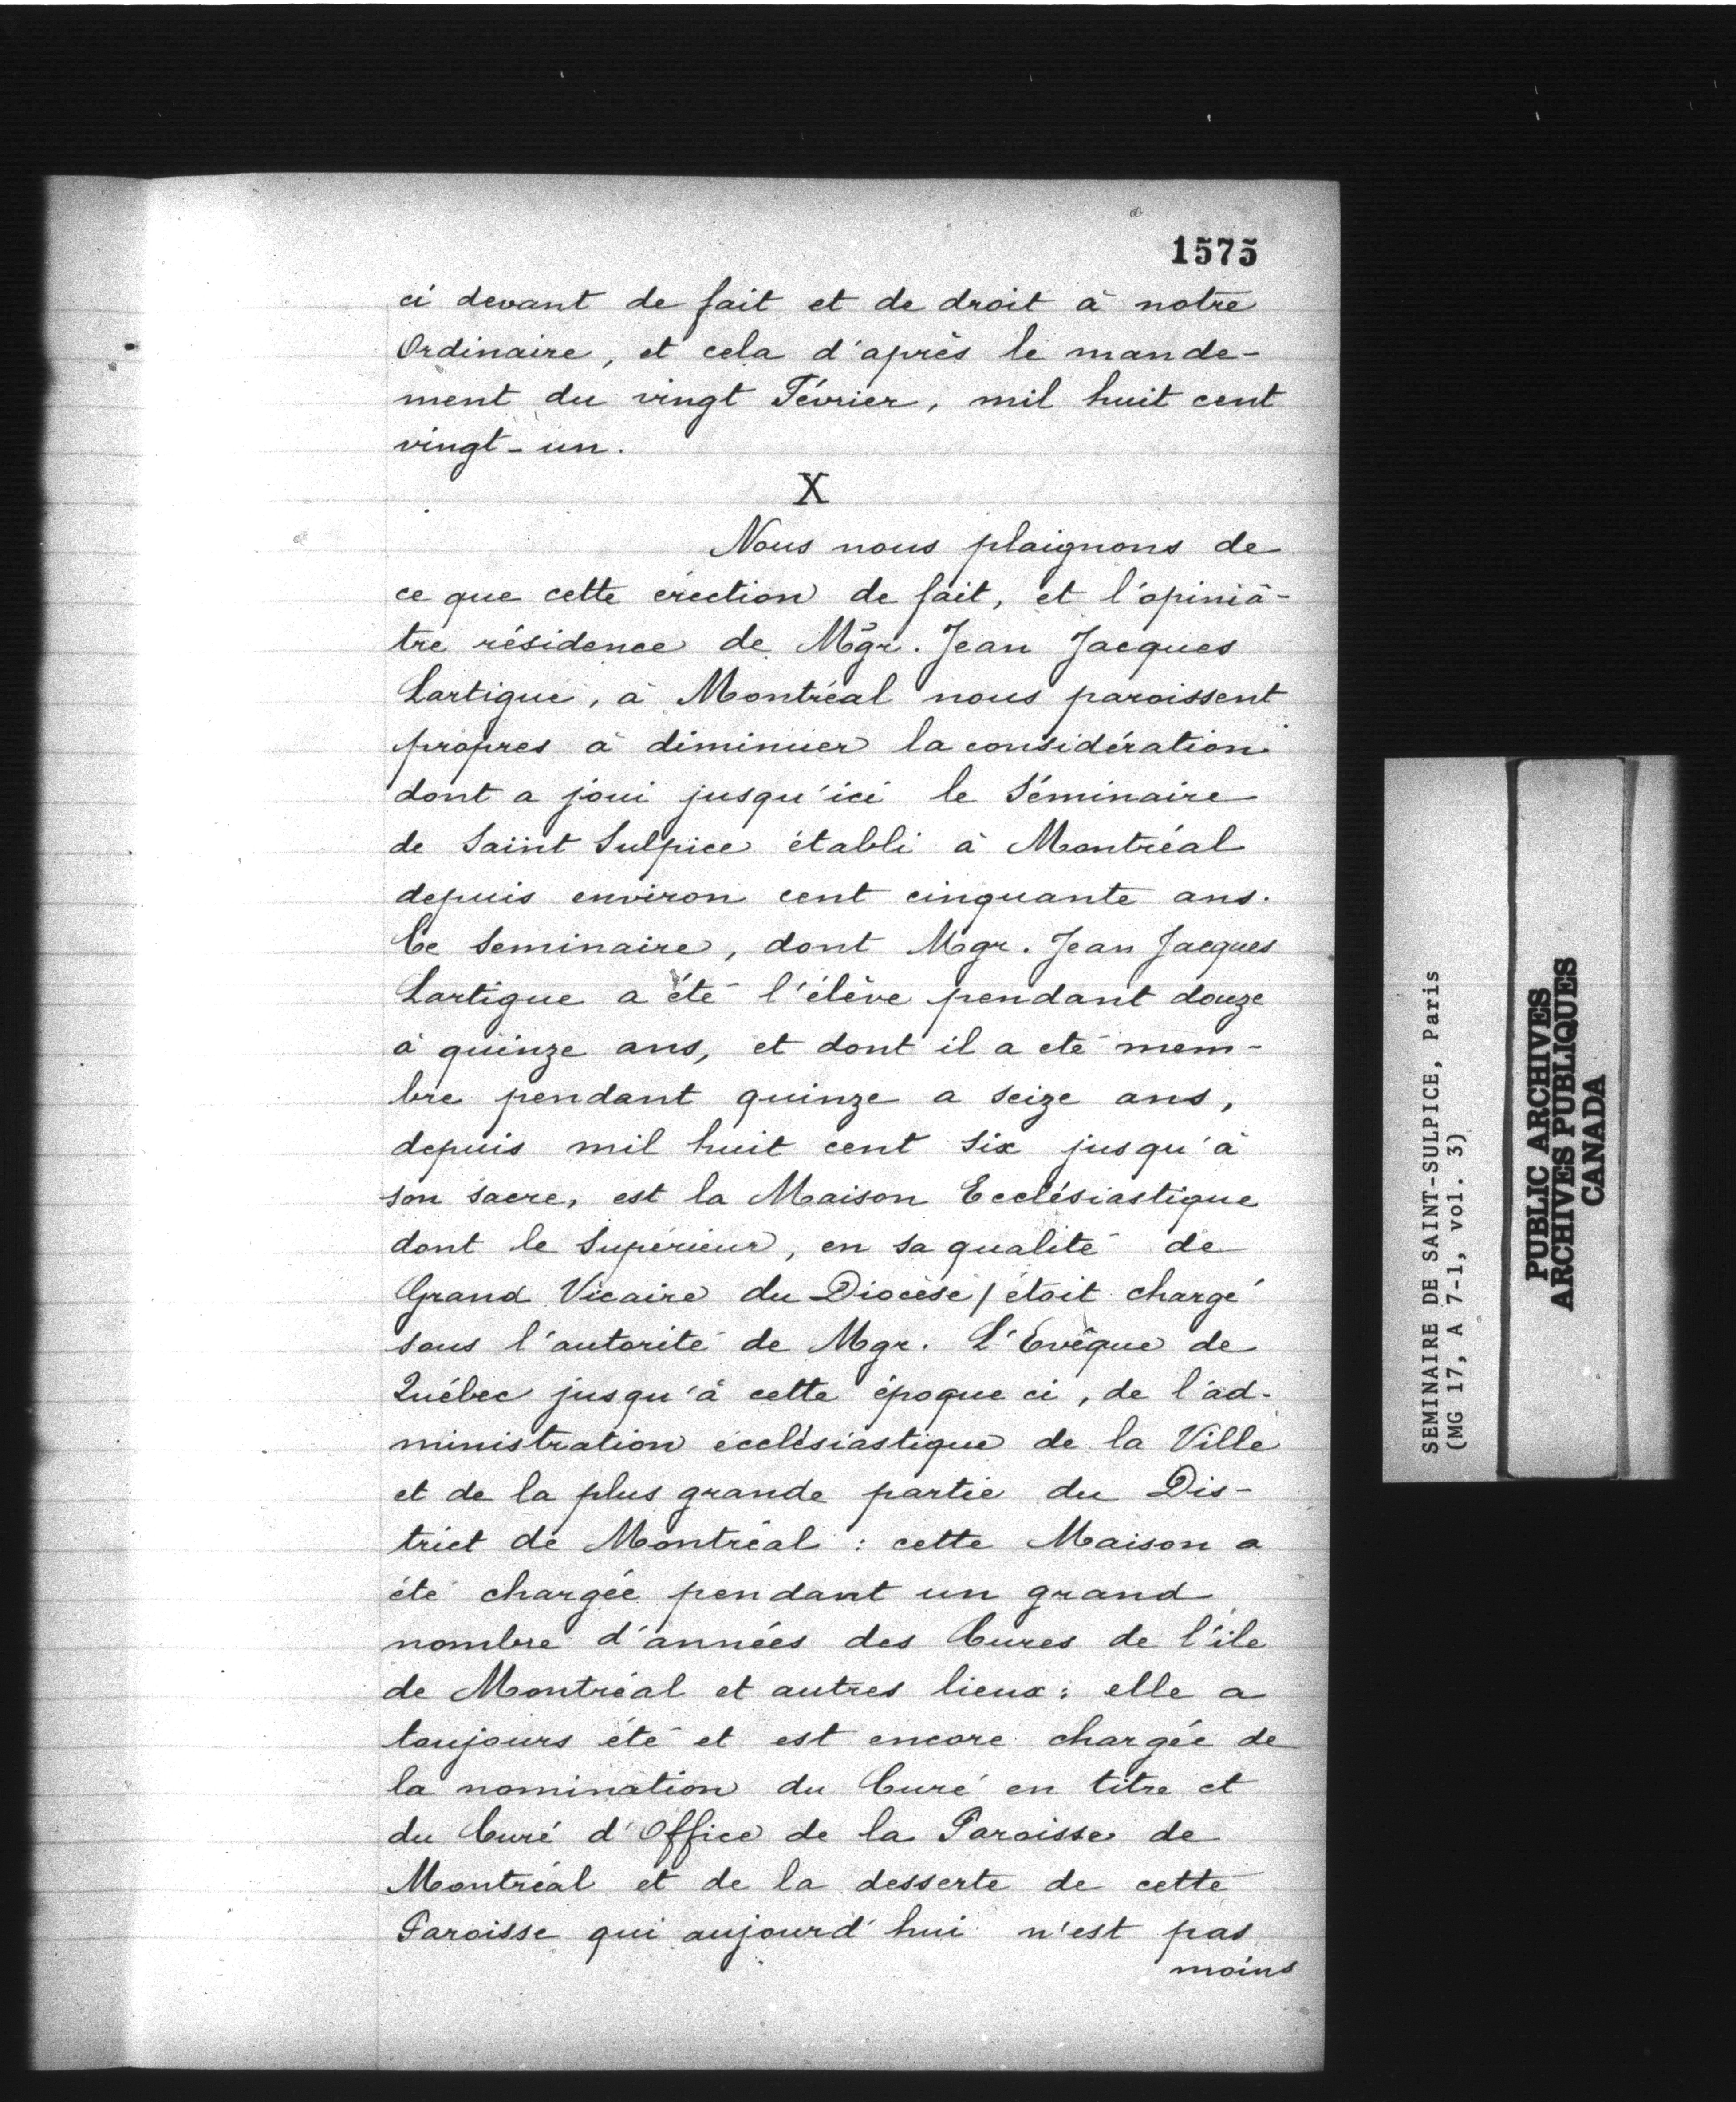 1575
ci devant de fait et de droit à notre
Ordinaire, et cela d'après le mande-
ment du vingt Février, mil huit cent
vingt-un.
X
Nous nous plaignons de
ce que cette érection de fait, et l'opiniâ-
tre résidence de Mgr. Jean Jacques
Lartigue, à Montréal nous paroissent
propres à diminuer la considération
dont a joui jusqu'ici le Séminaire
de Saint Sulpice établi à Montréal
depuis environ cent cinquante ans.
Ce Seminaire, dont Mgr. Jean Jacques
Lartigue a été l'élève pendant douze
à quinze ans, et dont il a eté mem-
bre pendant quinze a seize ans,
depuis mil huit cent six jusqu'à
son sacre, est la Maison Ecclésiastique
dont le Supérieur, en sa qualité de
Grand Vicaire du Diocèse / étoit chargé
sous l'autorité de Mgr. L'Evêque de
Québec jusqu'à cette époque ci, de l'ad-
ministration ecclésiastique de la Ville
et de la plus grande partie du Dis-
trict de Montréal : cette Maison a
été chargée pendant un grand
nombre d'années des Cures de l'île
de Montréal et autres lieux : elle a
toujours été et est encore chargée de
la nomination du Curé en titre et
du Curé d'Office de la Paroisse de
Montréal et de la desserte de cette
Paroisse qui aujourd'hui n'est pas
moins
SEMINAIRE DE SAINT-SULPICE, Paris
(MG 17, A 7-1, vol. 3)
PUBLIC ARCHIVES
ARCHIVES PUBLIQUES
CANADA